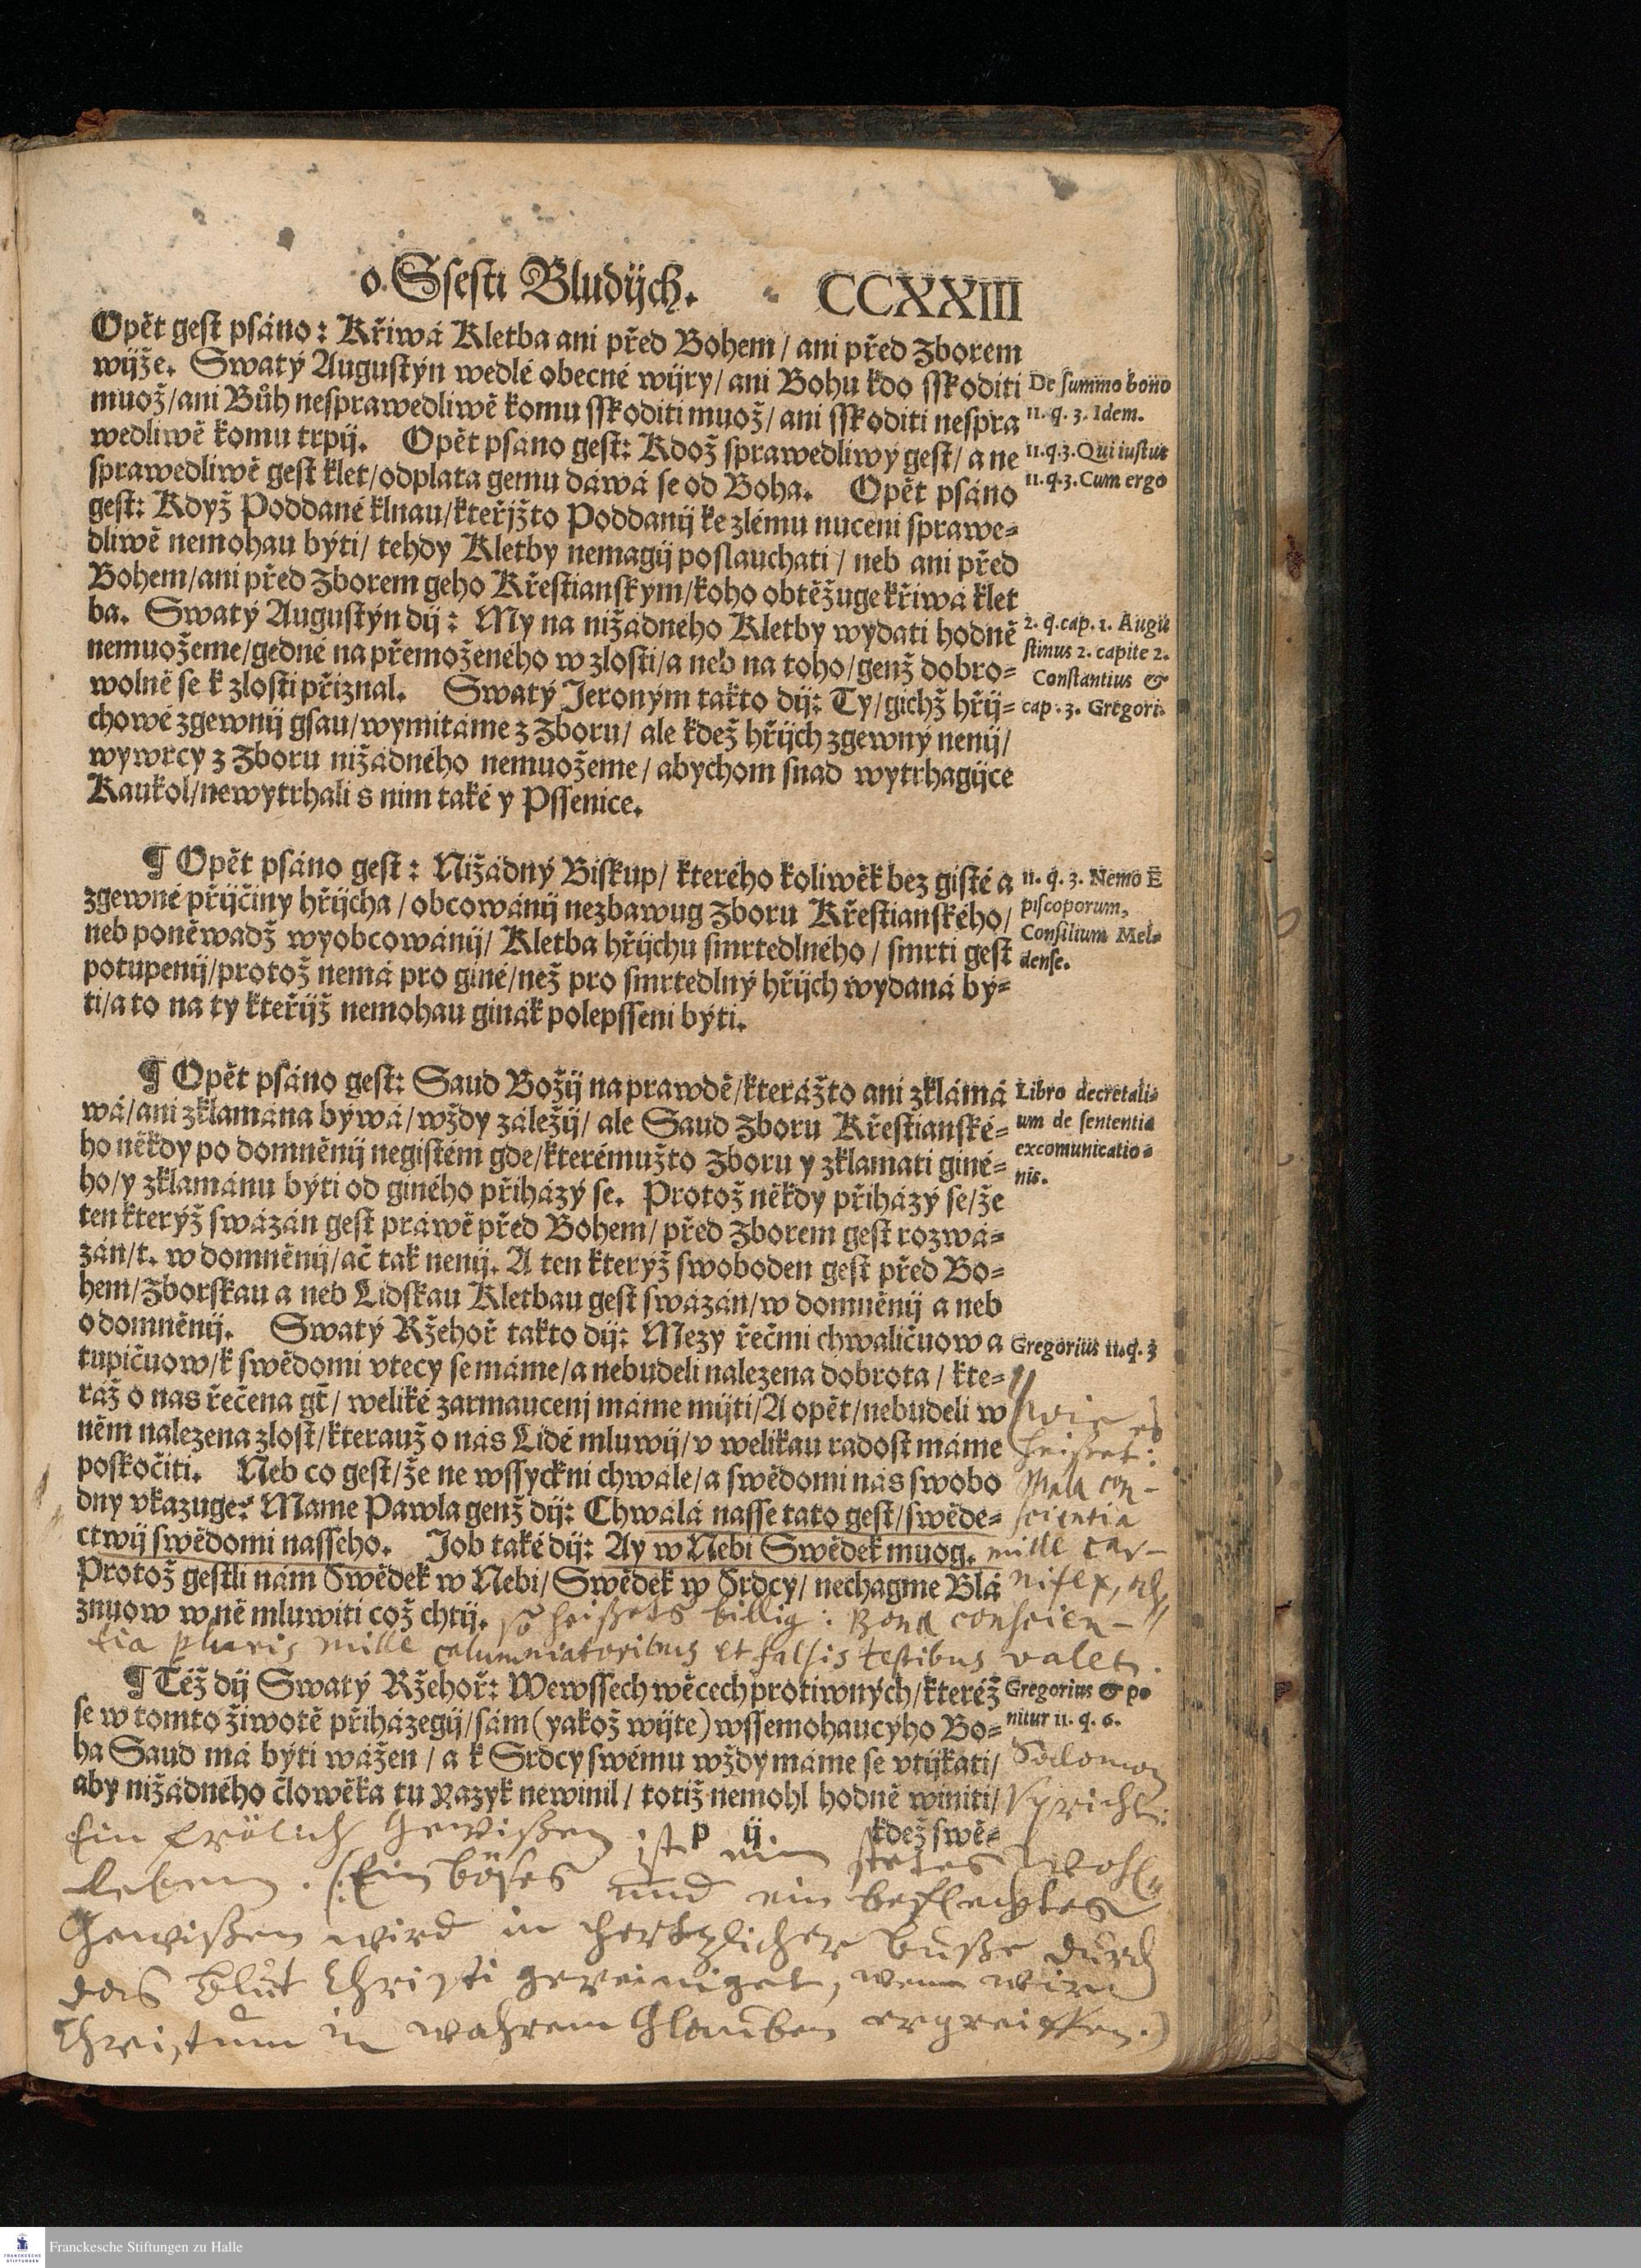 o Ssesti Bludijch. CCXXIII
Opět gest psáno: Křiwá Kletba ani před Bohem / ani před Zborem
wijže. Swatý Augustýn wedlé obecné wijry / ani Bohu kdo sskoditi
muož / ani Bůh nesprawedliwě komu sskoditi muož / ani sskoditi nespra
wedliwě komu trpij. Opět psáno gest: Kdož sprawedliwý gest / a ne
sprawedliwě gest klet / odplata gemu dáwá se od Boha. Opět psáno
gest: Když Poddané klnau / kteřjžto Poddanij ke zlému nuceni sprawe=
dliwě nemohau býti / tehdy Kletby nemagij poslauchati / neb ani před
Bohem / ani před Zborem geho Křestianským / koho obtěžuge křiwá klet
ba. Swatý Augustýn dij: My na nižádného Kletby wydati hodně
nemuožeme / gedné na přemoženého w zlosti / a neb na toho / genž dobro=
wolně se k zlosti přiznal. Swatý Jeroným takto dij: Ty / gichž hřij=
chowé zgewnij gsau / wymitáme z Zboru / ale kdež hřijch zgewný nenij /
wywrcy z Zboru nižádného nemuožeme / abychom snad wytrhagijce
Kaukol / newytrhali s nim také y Pssenice.
De summo bono
11. q. 3. Idem.
11. q. 3. Qui iustus
11. q. 3. Cum ergo
2. q. cap. 1. Augu
stinus 2. capite 2.
Constantius &
cap. 3. Gregori.
¶ Opět psáno gest: Nižádný Biskup / kterého koliwěk bez gisté a
zgewné přijčiny hřijcha / obcowánij nezbawug Zboru Křestianského /
neb poněwadž wyobcowánij / Kletba hřijchu smrtedlného / smrti gest
potupenij / protož nemá pro giné / než pro smrtedlný hřijch wydaná bý=
ti / a to na ty kteřijž nemohau ginák polepsseni býti.
11. q. 3. Nemo E
piscoporum,
Consilium Mel=
dense.
¶ Opět psáno gest: Saud Božij na prawdě / kterážto ani zklámá
wá / ani zklamána býwá / wždy záležij / ale Saud Zboru Křestianské=
ho někdy po domněnij negistém gde / kterémužto Zboru y zklamati giné=
ho / y zklamánu býti od giného přiházý se. Protož někdy přiházý se / že
ten kterýž swázán gest práwě před Bohem / před Zborem gest rozwá=
zán / t. w domněnij / ač tak nenij. A ten kterýž swoboden gest před Bo=
hem / Zborskau a neb Lidskau Kletbau gest swázán / w domněnij a neb
o domněnij. Swatý Ržehoř takto dij: Mezy řečmi chwaličuow a
tupičuow / k swědomi vtecy se máme / a nebudeli nalezena dobrota / kte=
ráž o nas řečena gt / weliké zarmaucenj máme mijti / A opět / nebudeli w
něm nalezena zlost / kterauž o nás Lidé mluwij / v welikau radost máme
poskočiti. Neb co gest / že ne wssyckni chwále / a swědomi nás swobo
dny vkazuge? Máme Pawla genž dij: Chwálá nasse tato gest / swěde=
ctwij swědomi nasseho. Job také dij: Ay w Nebi Swědek muog.
Protož gestli nám Swědek w Nebi / Swědek w Srdcy / nechagme Blá
znuow w ně mluwiti což chtij.
Libro decretali=
um de sententia
excomunicatio=
nis.
Gregorius 11. q. 3
wie es
heißet:
Mala con-
scientia
mille car-
nifex,
so heißets billig: Bona conscien-
tia pluris mille calumniatoribus et falsis testibus valet.
¶ Těž dij Swatý Ržehoř: Wewssech wěcech protiwných / kteréž
se w tomto žiwotě přiházegij / sám (yakož wijte) wssemohaucyho Bo=
ha Saud má býti wážen / a k Srdcy swému wždy máme se vtijkati /
aby nižádného člowěka tu Yazyk newinil / totiž nemohl hodně winiti /
p ij. kdež swě=
Gregorius & po
nitur 11. q. 6.
Salomon
spricht:
Ein frölich Gewißen ist ein stetes Wohl
leben. (Ein böses und ein beflecktes
Gewißen wird in hertzlicher Buße durch
das Blut Christi gereiniget, wenn wir
Christum in wahrem Glauben ergreiffen.)
Franckesche Stiftungen zu Halle